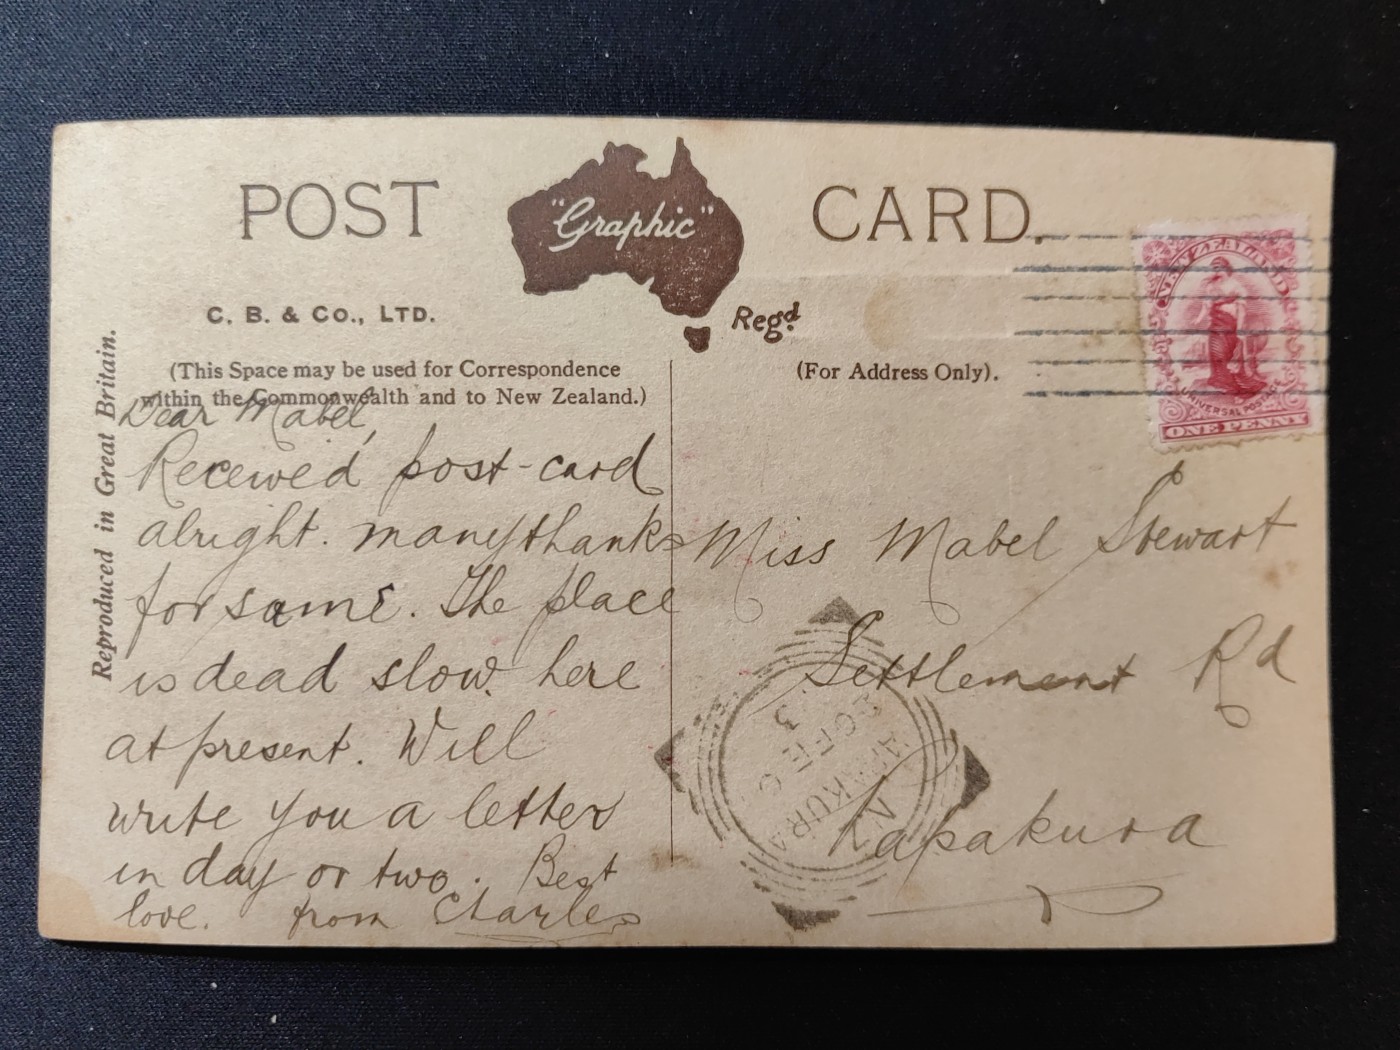 POST CARD.
"Graphic"
Regd.
C. B. & Co., LTD.
(This Space may be used for Correspondence
within the Commonwealth and to New Zealand.)
Reproduced in Great Britain.
Dear Mabel,
Received post-card
alright. many thanks
for same. The place
is dead slow. here
at present. Will
write you a letter
in day or two. Best
love. from Charles
(For Address Only).
NEW ZEALAND
UNIVERSAL POSTAGE
ONE PENNY
Miss Mabel Stewart
Settlement Rd
Papakura
PAPAKURA
N